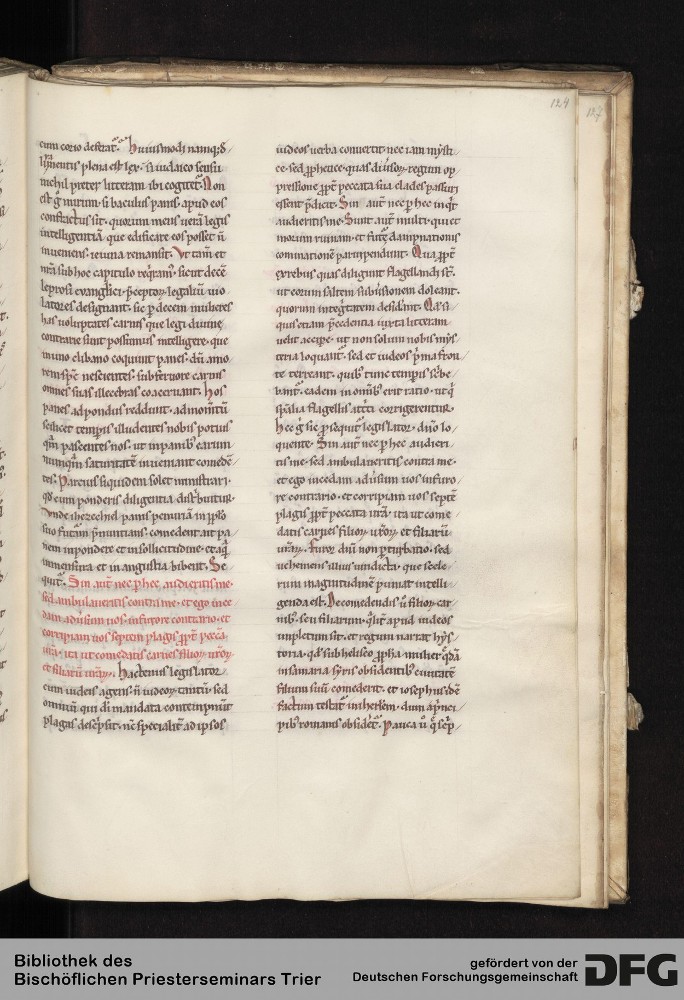 124
127
cum corio deserat᷑. Huiusmodi namq; d
mentis plena est lex. si iudaico sensu
nichil preter litteram ibi cogitet᷑. Non
est g̊ mirum. si baculus panis. apud eos
confractus sit. quorum mens uerā legis
intelligentiā. que edificare eos posset ñ
inueniens. ieiuna remansit. Vt tam̄ et
nr̄a sub hoc capitulo req̄ram᷒. sicut decē
leprosi euanglici. p̄ceptoꝝ legaliū uio
latores designant. sic ꝑ decem mulieres
has uoluptates carnis que legi diuine
contrarie sunt possumus intelligere. que
in uno clibano coquunt panes. dū amo
rem nescientes. sub feruore carnis
omnes suas illecebras coaceruant. Hos
panes ad pondus reddunt. ad
scilicet temp̄is illudentes nobis potius
qm̄ pascentes nos. ut in panib᷒ earum
nunqm̄ saturitatē inueniant comedē
tes. Parcius siquidem solet ministrari.
qd̄ cum ponderis diligentia distͥbuitur.
Vnde ihezechiel panis penuriā in pp̄lo
suo futurā p̄nuntians. comedent ait pa
nem in pondere et in sollicitudine. et aq̄
in mensura et in angustia bibent. Se
quit᷑. Sin aut̄ nec ꝑ hec audieritis me.
sed ambulaueritis contra me. et ego ince
dam aduersum uos. in furore contrario. et
corripiam uos septem plagis ꝓpt̄ pecca
ura. ita ut comedatis carnes filioꝝ urōꝝ
et filiarū urāꝝ. Hactenus legislator
cum iudeis agens. ñ iudeoꝝ tantū. sed
omnium qui dī mandata contempnūt
plagas desc̄psit. nc̄ specialit̄ ad ipsos
iudeos uerba conuertit. nec iam mysti
ce. sed ꝓphetice. quas diuersoꝝ regum op
pressione ꝓpt̄ peccata sua clades passuri
essent p̄dicit. Sin aut̄ nec ꝑ hec inqͥt
audieritis me. Sunt aut̄ multi. qui et
morum ruinam. et future dampnationis
comminationē paruipendunt. Qua ꝓpt̄
crebrius quas diligunt flagellandi st̄.
ut eorum saltem subuersionem doleant.
quorum integͥtatem desiderant. Qa si
quis etiam p̄cedentia iuxta litteram
uelit accipe. ut non solum nobis mys
teria loquant᷑. sed et iudeos p̄ma fron
te terreant. quib᷒ tunc temp̄is scͥbe
bant᷑. eadem in omīb᷒ erit ratio. ut q̄
sp̄alia flagellis attͥti corrigerentur.
Hec g̊ sic ꝑsequit᷑ legislator. dn̄o lo
quente. Sin aut̄ nec ꝑ hec audieri
tis me. sed ambulaueritis contra me.
et ego incedam aduersum uos in furo
re contrario. et corripiam uos septē
plagis ꝓpt̄ peccata ura. ita ut come
datis carnes filioꝝ urōꝝ. et filiarū
urāꝝ. Furor dn̄i non ꝑturbatio. sed
uehemens illius uindicta. que scele
rum magnitudinē p̄mat intelli
genda est. De comedendis ū filioꝝ car
nib᷒. seu filiarum. qͥlit̄ apud iudeos
impletum sit. et regum narrat hys
toria. qd̄ sub heliseo ꝓpha. mulier q̄dā
in samaria syris obsidentib᷒ ciuitatē
filium suū comederit. et iosephus idē
factum testat᷑ in ihrl̄em. dum a pͥnci
pib᷒ romanis obsidet᷑. Pauca ū q̄
Bibliothek des
Bischöflichen Priesterseminars Trier
gefördert von der
Deutschen Forschungsgemeinschaft
DFG